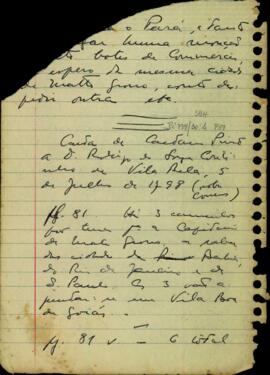 o Pará, e
numa monção
botes de Commercio,
da mesma cidade
de Matto Grosso, conto de
pedir outra etc.
SBH
Carta de Caetano Pinto
a D. Rodrigo de Souza Couti
nho de Vila Bela, 5
de Julho de 1798
ff. 81 Há 3 caminhos
por terra p.a a Capitania
de Mato Grosso, a saber
das cidades da Bahia,
do Rio de Janeiro e de
S. Paulo. Os 3 vão a
juntar-se em Vila Boa
de Goiás. —
ff. 81 v — 6 total